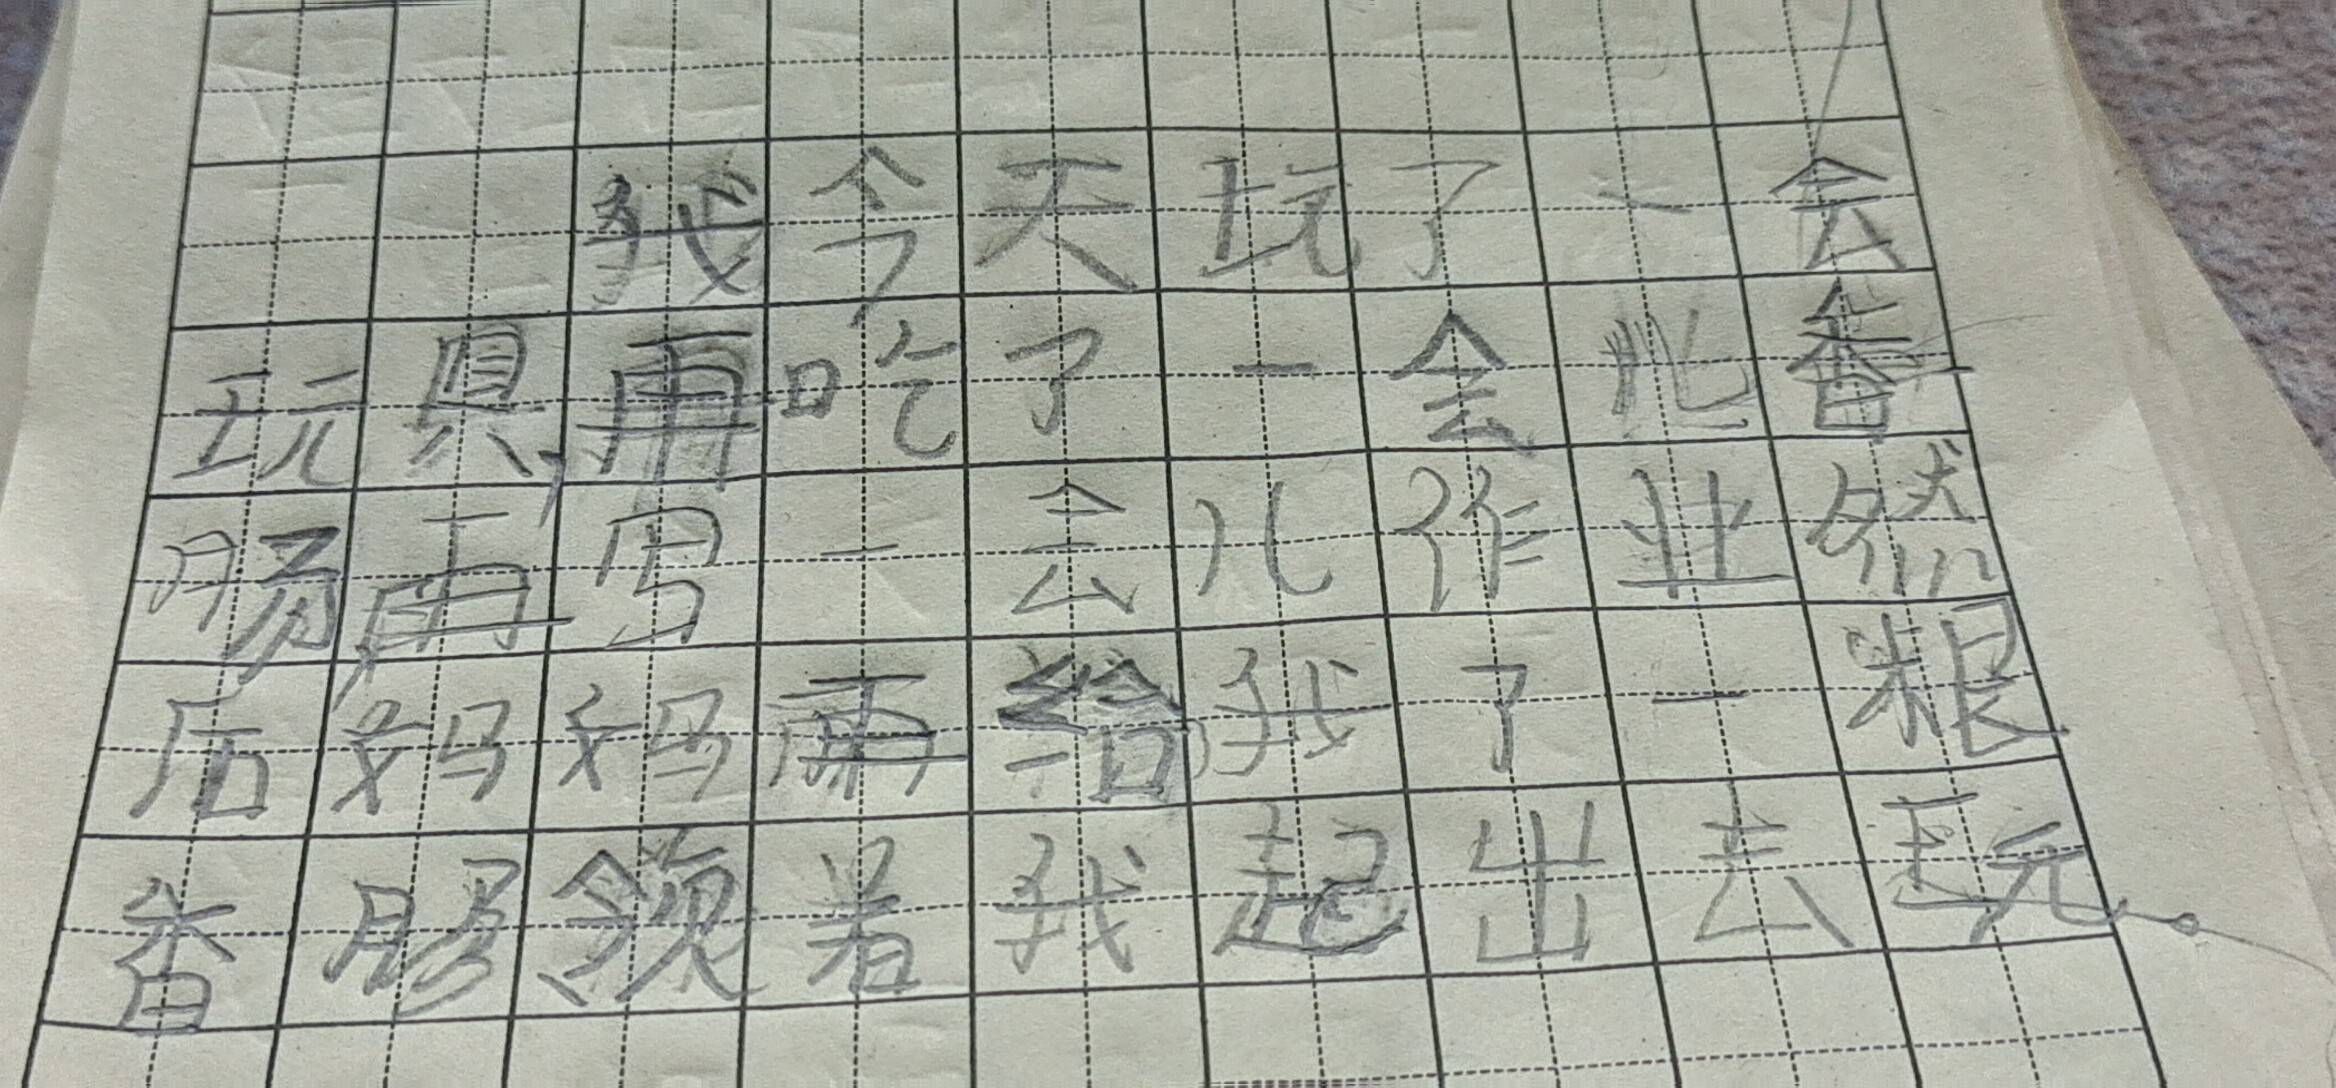 我今天玩了一会
玩具,再吃了一会儿香
肠,再写一会儿作业然
后妈妈再给我了一根
香肠领着我起出去玩